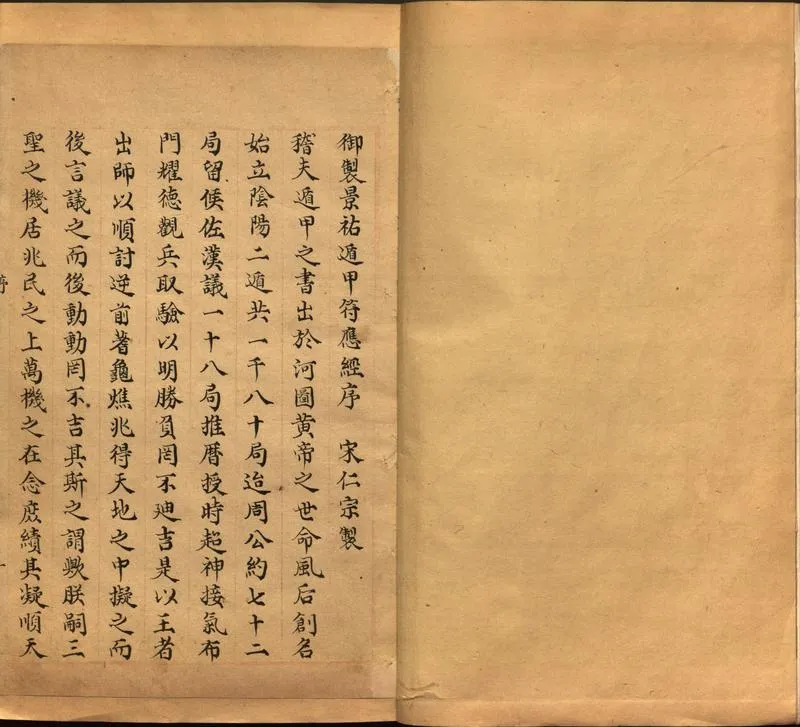 御製景祐遁甲符應經序 宋仁宗製
稽夫遁甲之書出於河圖黄帝之世命風后創名
始立陰陽二遁共一千八十局迨周公約七十二
局留侯佐漢議一十八局推曆授時超神接氣布
門耀德觀兵取驗以明勝負罔不迪吉是以王者
出師以順討逆前著龜燋兆得天地之中擬之而
後言議之而後動動罔不吉其斯之謂歟朕嗣三
聖之機居兆民之上萬機之在念庶績其凝順天
序
一